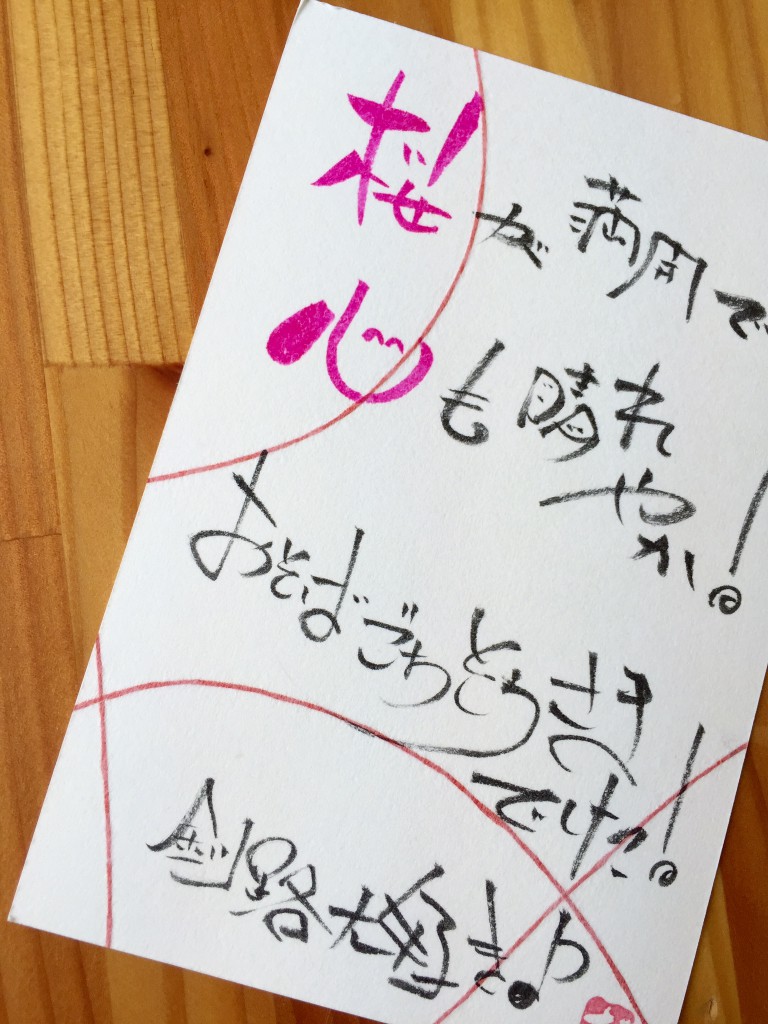 桜が満開で
心も晴れ
やか!
おそばごちそうさま
でした!
釧路大好き♪